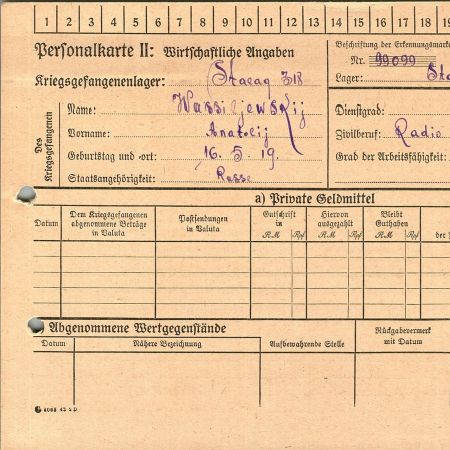 1 2 3 4 5 6 7 8 9 10 11 12 13 14 15 16 17 18 19
Personalkarte II: Wirtschaftliche Angaben
Kriegsgefangenenlager: Stalag 318
Beschriftung der Erkennungsmarke
Nr. 99099
Lager: Sta
Des Kriegsgefangenen
Name: Wassiljewskij
Vorname: Anatolij
Geburtstag und -ort: 16. 5. 19.
Staatsangehörigkeit: Russe
Dienstgrad:
Zivilberuf: Radio
Grad der Arbeitsfähigkeit:
a) Private Geldmittel
Datum
Dem Kriegsgefangenen abgenommene Beträge in Valuta
Postsendungen in Valuta
Gutschrift in
RM Rpf
Hiervon ausgezahlt
RM Rpf
Bleibt Guthaben
RM Rpf
der
) Abgenommene Wertgegenstände
Datum
Nähere Bezeichnung
Aufbewahrende Stelle
Rückgabevermerk mit Datum